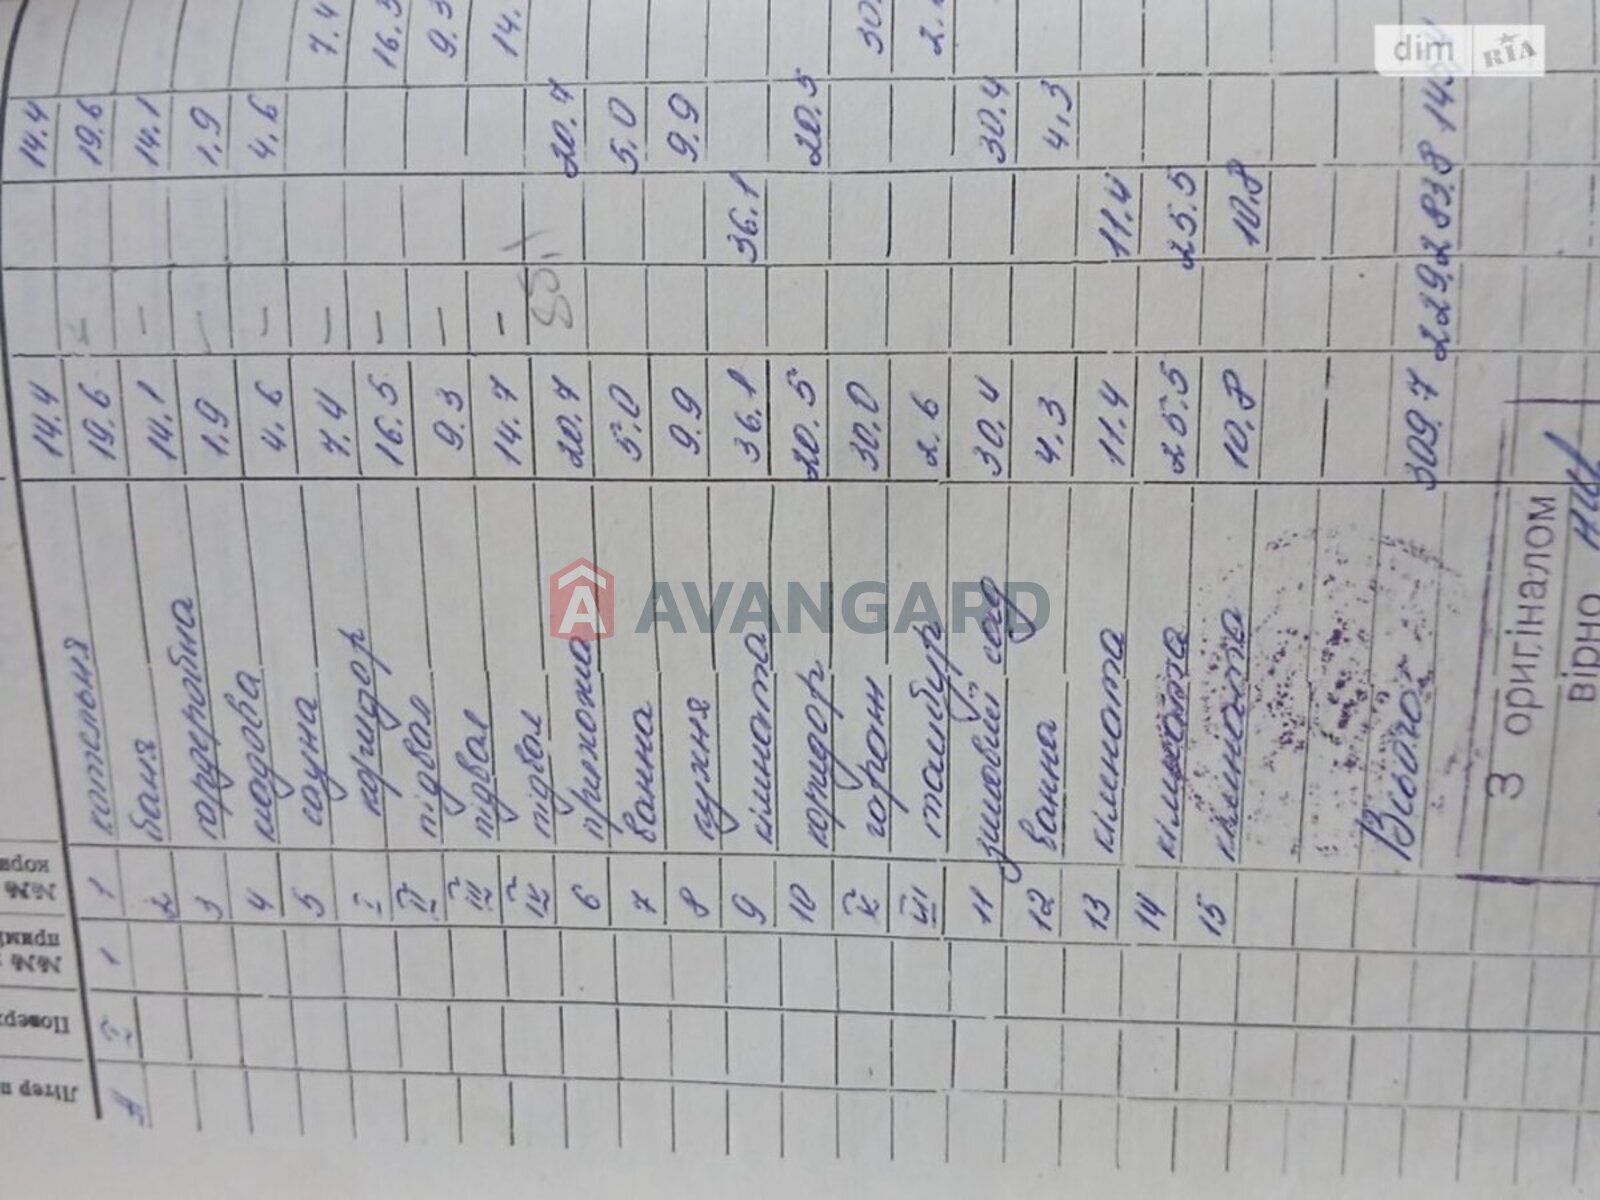 Літер п
Поверх
№№ прим
№№ кори
А 1 1 котельня 14.4 14.4
2 баня 19.6 19.6
3 гардеробна 14.1 14.1
4 кладова 1.9 1.9
5 сауна 4.6 4.6
I коридор 7.4 7.4
II підвал 16.5 16.5
III підвал 9.3 9.3
IV підвал 14.7 14.
6 прихожа 20.7 20.7
7 ванна 5.0 5.0
8 кухня 9.9 9.9
9 кімната 36.1 36.1
10 коридор 20.5 20.5
V гараж 30.0 30.
VI тамбур 2.6 2.
11 зимовий сад 30.4 30.4
12 ванна 4.3 4.3
13 кімната 11.4 11.4
14 кімната 25.5 25.5
15 кімната 10.8 10.8
Всього: 309.7 229.2 83.8 145.
З оригіналом
вірно
AVANGARD
dim RIA